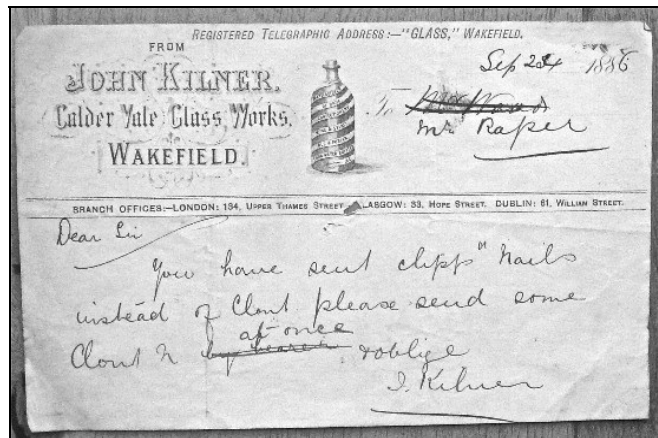 REGISTERED TELEGRAPHIC ADDRESS:—"GLASS," WAKEFIELD.
FROM
JOHN KILNER,
Calder Vale Glass Works,
WAKEFIELD.
Sep 1886
To
Mr Raper
BRANCH OFFICES:—LONDON: 134, UPPER THAMES STREET. GLASGOW: 33, HOPE STREET. DUBLIN: 61, WILLIAM STREET.
Dear Sir
You have sent clipp" Nails
instead of Clout please send some
at once
Clout N by bearer &oblige
J. Kilner